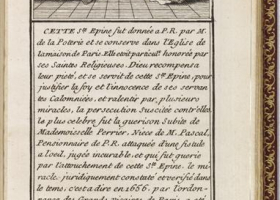 CETTE Ste Epine fut donnée a P.R. par M.
de la Potterie et se conserve dans l'Eglise de
la maison de Paris. Elle est particult honorée par
ses Saintes Religieuses. Dieu recompensa
leur pieté, et se servit de cette Ste Epine, pour
justifier la foy et l'innocence de ses servan
tes Calomniées, et ralentir par plusieurs
miracles, la persecution Suscitée contr'elles,
la plus celebre fut la guerison Subite de
Mademoiselle Perrier, Niece de M. Pascal,
Pensionnaire de P.R. attaquée d'une fistule
a l'oeil, jugée incurable, et qui fut guerie
par l'attouchement de cette Ste Epine. le mi
racle, juridiquement constaté et verifié dans
le tems, c'est a dire en 1656. par l'ordon